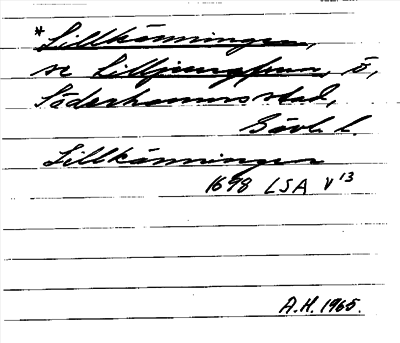 *Lillkänningen,
se Lilljungfrun, ö,
Söderhamns stad,
Gävl. l.
Lillkänningen
1698 LSA V¹³
A.H. 1965.